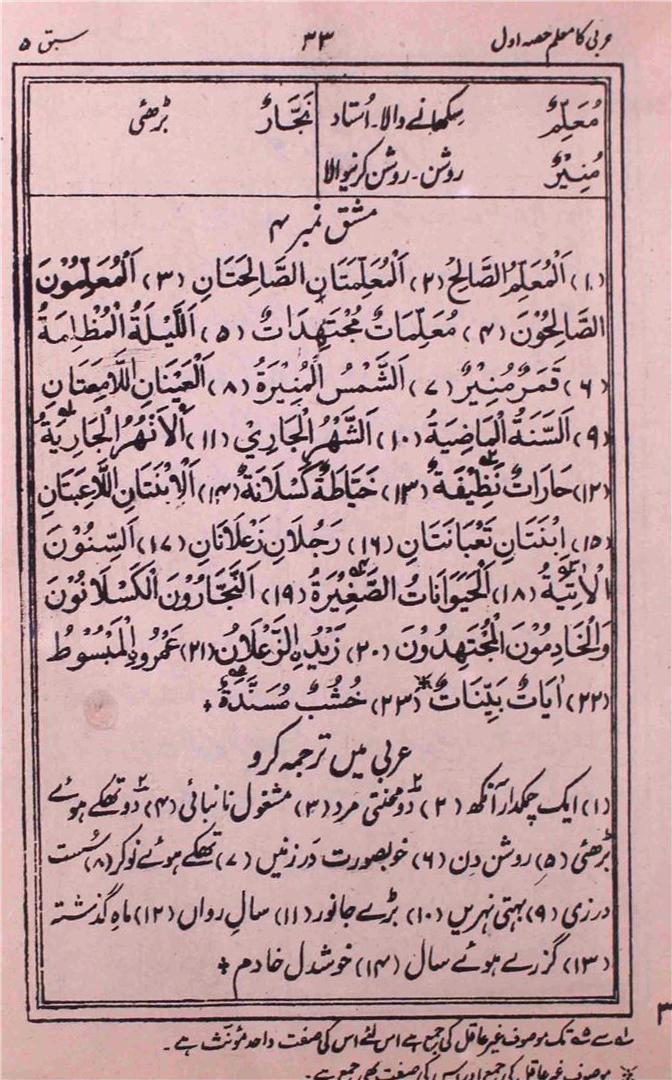 عربی کا معلم حصہ اول ۳۳ سبق ۵
مُعَلِّمٌ سکھانے والا۔ اُستاد نَجَّارٌ بڑھئی
مُنِیْرٌ روشن۔ روشن کرنیوالا
مشق نمبر ۴
(۱) اَلْمُعَلِّمُ الصَّالِحُ (۲) اَلْمُعَلِّمَتَانِ الصَّالِحَتَانِ (۳) اَلْمُعَلِّمُوْنَ
الصَّالِحُوْنَ (۴) مُعَلِّمَاتٌ مُجْتَهِدَاتٌ (۵) اَللَّيْلَةُ الْمُظْلِمَةُ
(۶) قَمَرٌ مُنِيْرٌ (۷) اَلشَّمْسُ الْمُنِيْرَةُ (۸) اَلْعَيْنَانِ اللَّامِعَتَانِ
(۹) اَلسَّنَةُ الْمَاضِيَةُ (۱۰) اَلشَّهْرُ الْجَارِيْ (۱۱) اَلْاَنْهُرُ الْجَارِيَةُ ۱ہ
(۱۲) حَارَاتٌ نَظِيْفَةٌ ۲ہ (۱۳) خَيَّاطَةٌ كَسْلَانَةٌ (۱۴) اَلْاِبْنَتَانِ اللَّاعِبَتَانِ
(۱۵) اِبْنَتَانِ تَعْبَانَتَانِ (۱۶) رَجُلَانِ زَعْلَانَانِ (۱۷) اَلسِّنُوْنَ
الْاٰتِيَةُ ۳ہ (۱۸) اَلْحَيَوَانَاتُ الصَّغِيْرَةُ ۴ہ (۱۹) اَلنَّجَّارُوْنَ الْكَسْلَانُوْنَ
وَالْخَادِمُوْنَ الْمُجْتَهِدُوْنَ (۲۰) زَيْدُنِ الزَّعْلَانُ (۲۱) عَمْرُونِ الْمَبْسُوْطُ
(۲۲) اٰيَاتٌ بَيِّنَاتٌ * (۲۳) خُشُبٌ مُسَنَّدَةٌ ۵ہ +
عربی میں ترجمہ کرو
(۱) ایک چمکدار آنکھ (۲) دو ۲ محنتی مرد (۳) مشغول نانبائی (۴) دو ۲ تھکے ہوئے
بڑھئی (۵) روشن دن (۶) خوبصورت درزنیں (۷) تھکے ہوئے نوکر (۸) سُست
درزی (۹) بہتی نہریں (۱۰) بڑے جانور (۱۱) سالِ رواں (۱۲) ماہِ گذشتہ
(۱۳) گزرے ہوئے سال (۱۴) خوشدل خادم +
۱ہ سے ۵ہ تک موصوف غیر عاقل کی جمع ہے اس لئے اس کی صفت واحد مؤنث ہے۔
* موصوف غیر عاقل کی جمع اور اس کی صفت بھی جمع ہے۔